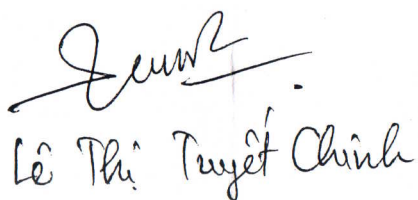 Lê Thị Tuyết Chinh